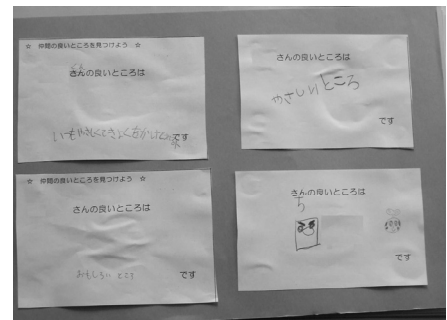 ☆ 仲間の良いところを見つけよう ☆
さんの良いところは
です
さんの良いところは
やさしいところ
です
☆ 仲間の良いところを見つけよう ☆
さんの良いところは
おもしろい ところ
です
さんの良いところは
ち
です